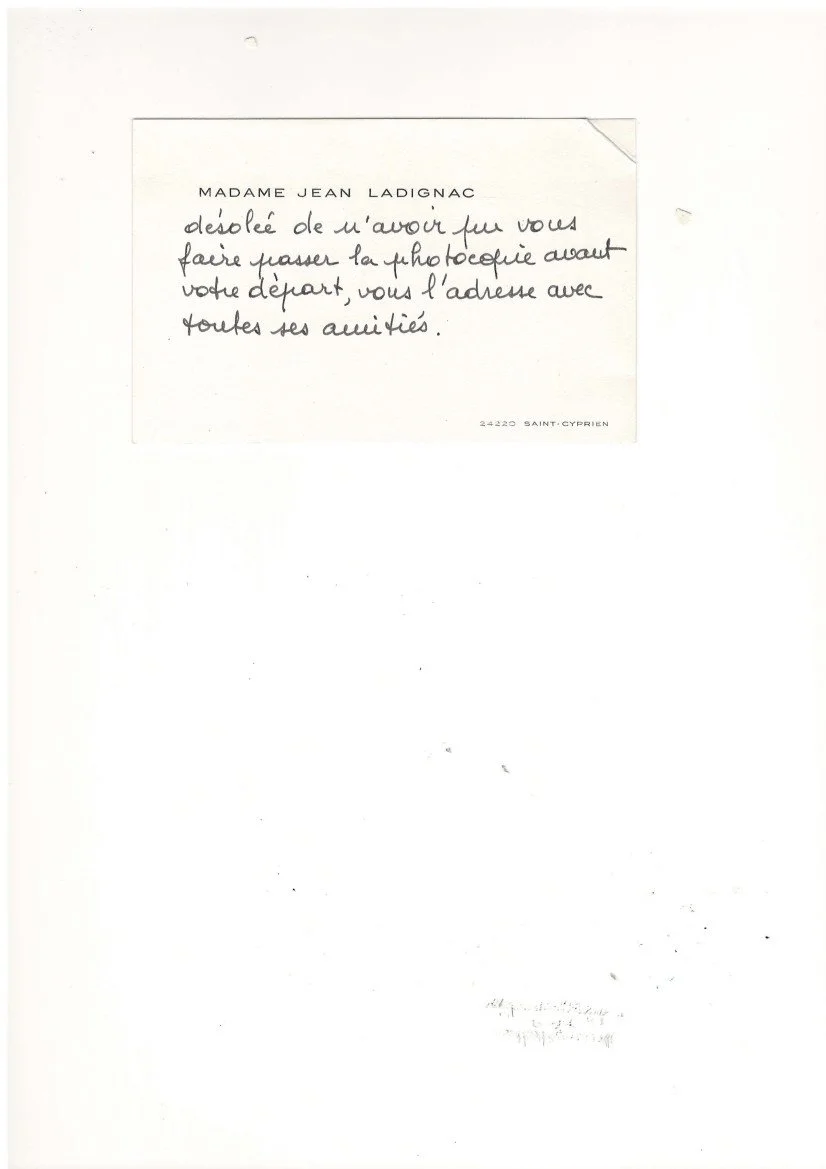 MADAME JEAN LADIGNAC
désolée de n'avoir pu vous
faire passer la photocopie avant
votre départ, vous l'adresse avec
toutes ses amitiés.
24220 SAINT-CYPRIEN